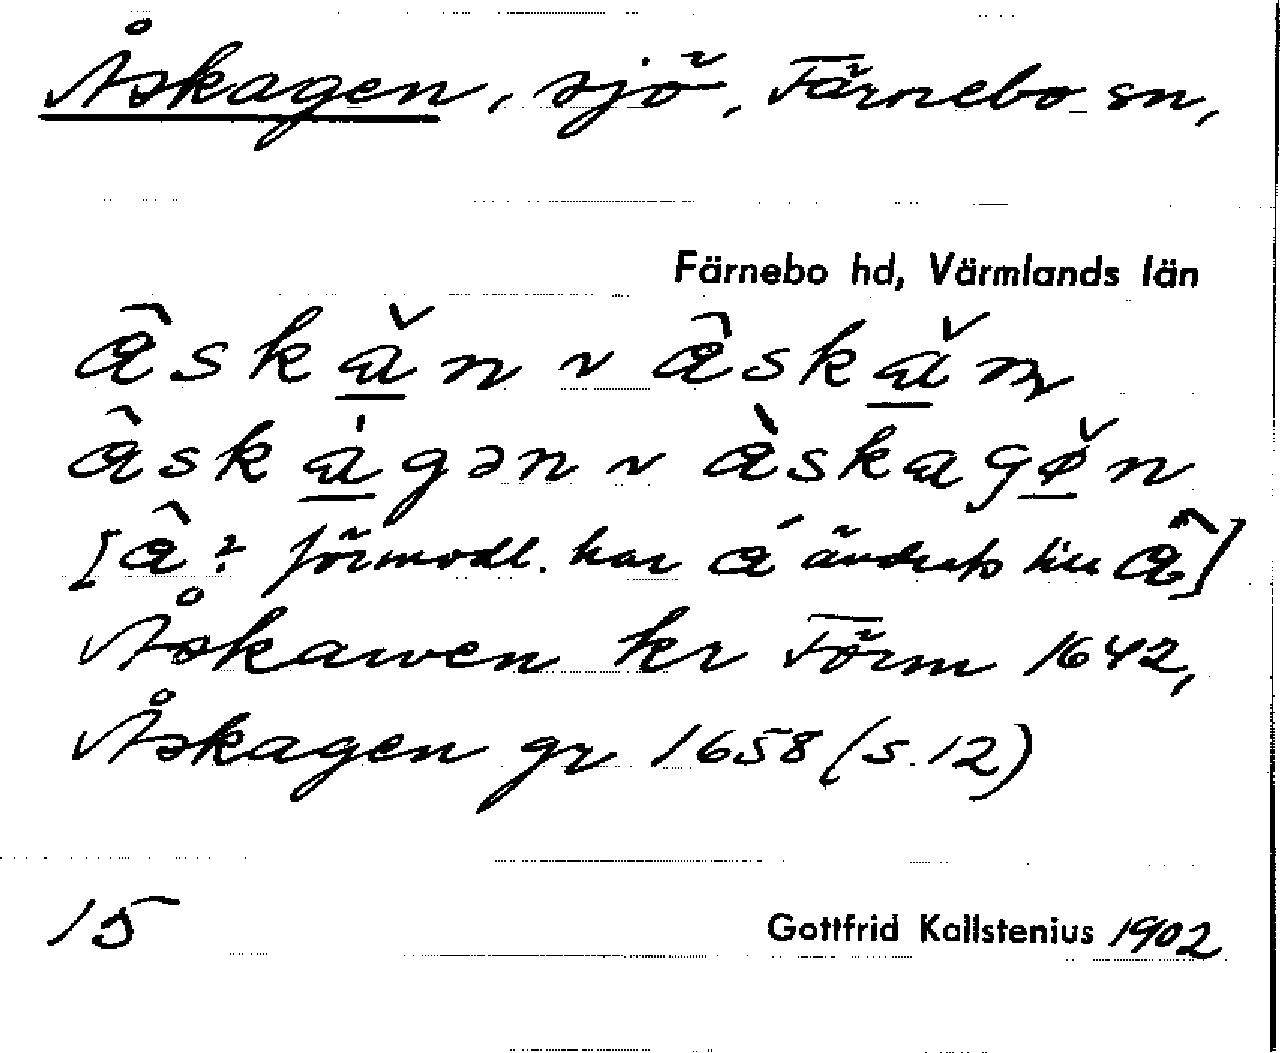 Åskagen, sjö, Färnebo sn,
Färnebo hd, Värmlands län
âskǎ̲n ~ âskǎ̲n
âská̲gən ~ àskagø̲̌n
[â? förmodl. har á ändrats till â]
Åskawen kr Förm 1642,
Åskagen gr 1658 (s. 12)
15
Gottfrid Kallstenius 1902